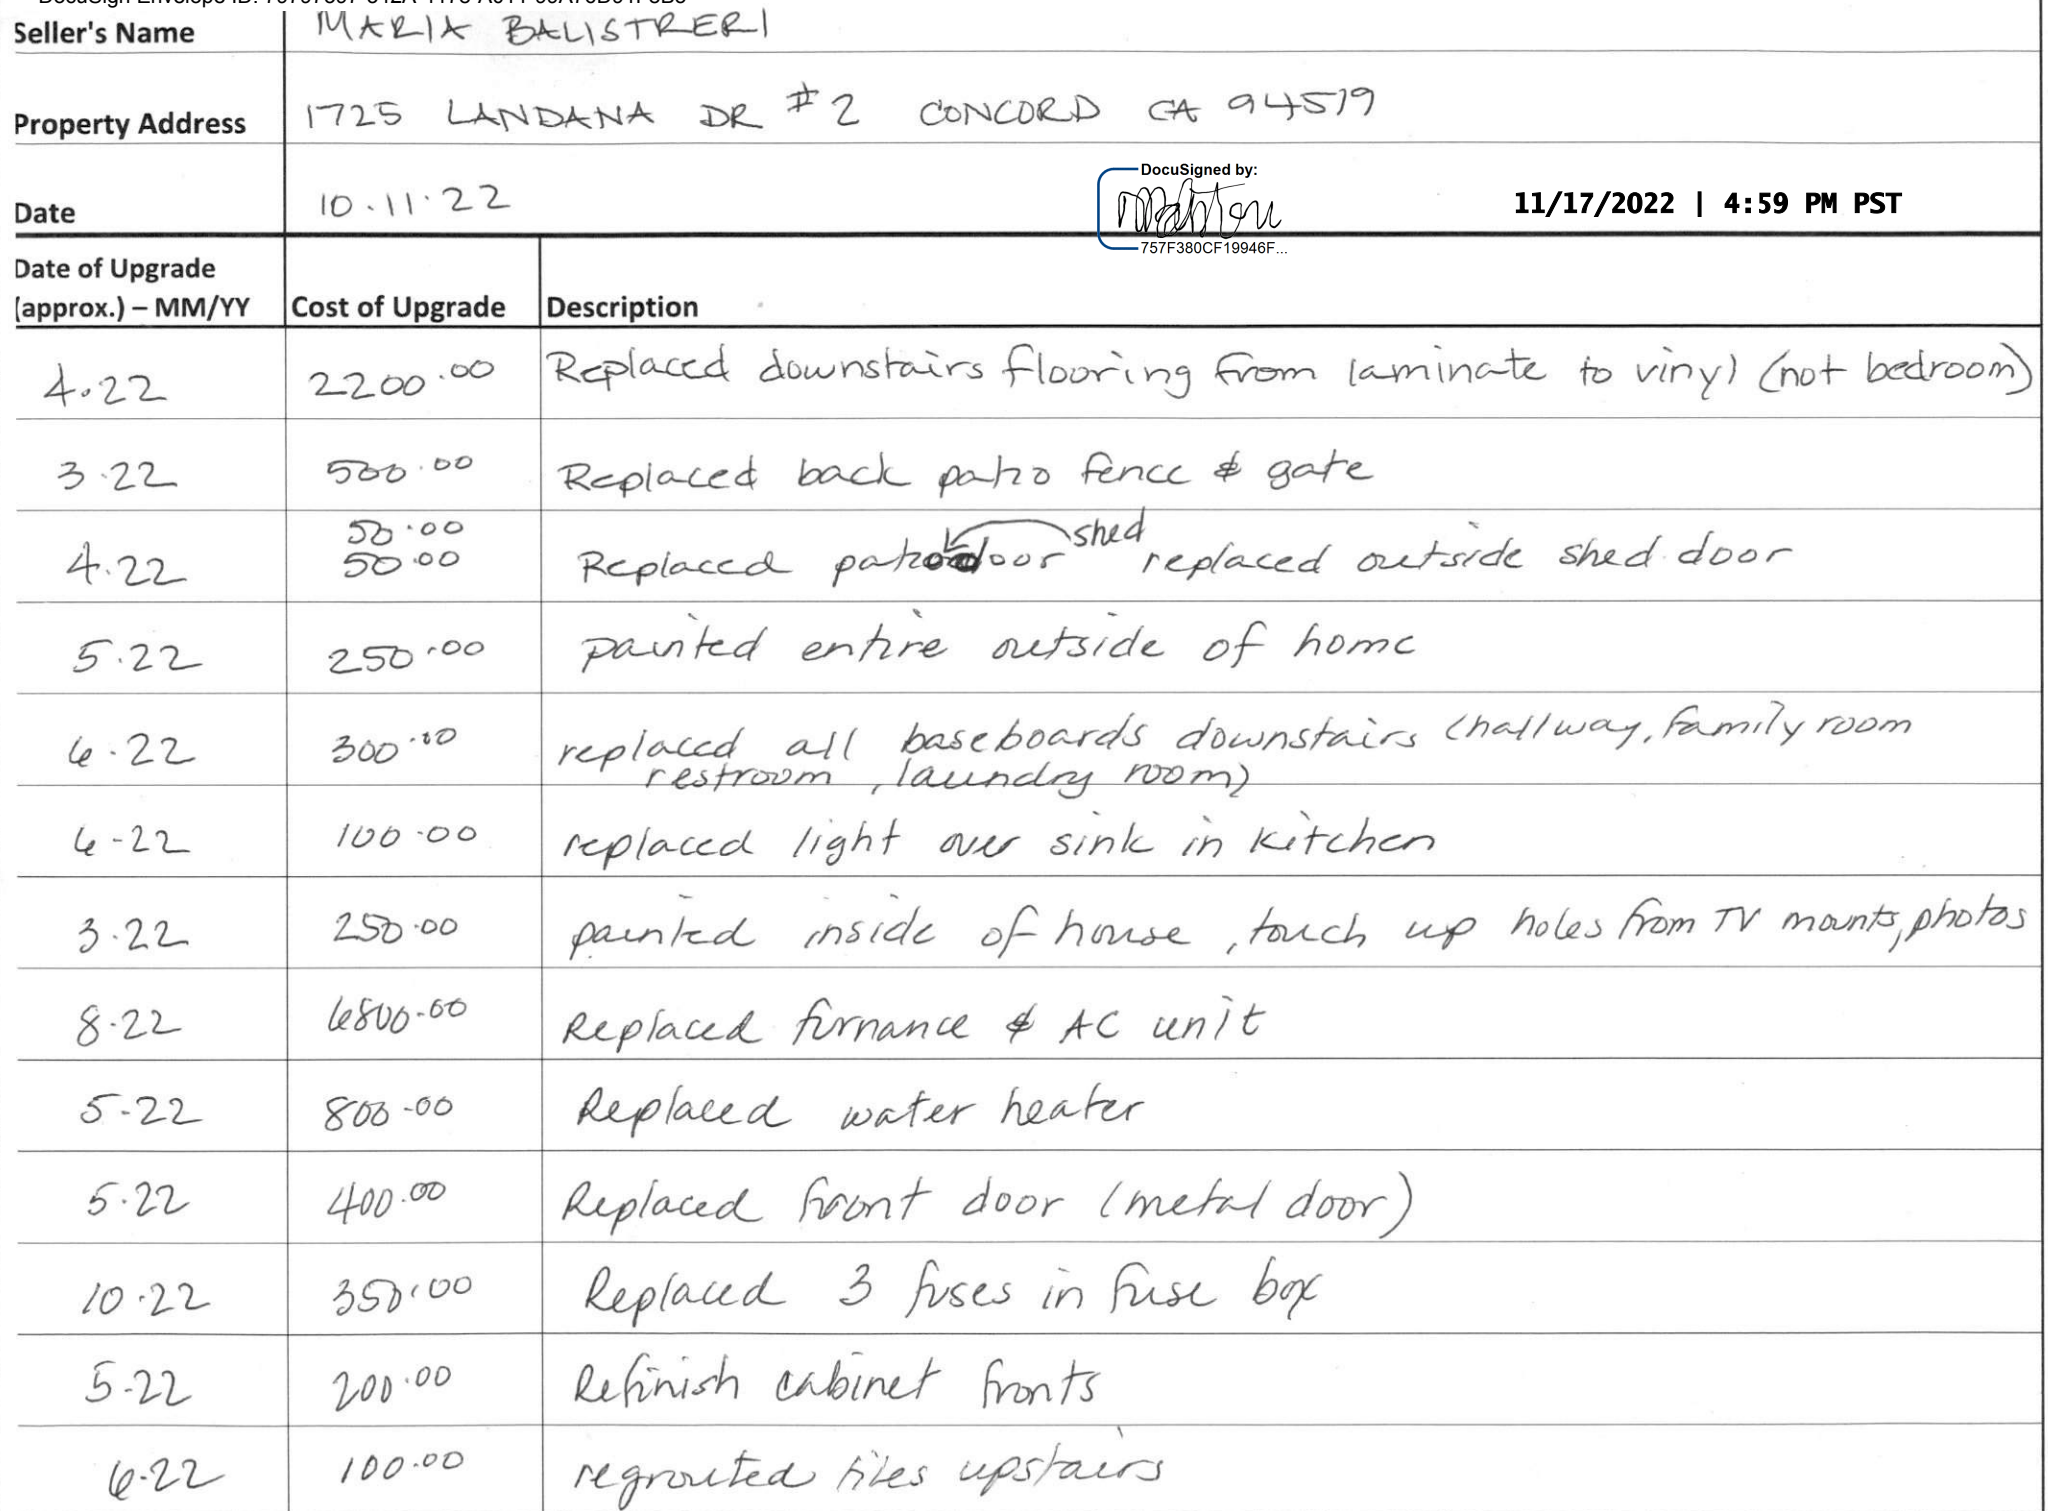 Seller's Name MARIA BALISTRERI
Property Address 1725 LANDANA DR #2 CONCORD CA 94519
DocuSigned by:
Date 10.11.22 11/17/2022 | 4:59 PM PST
757F380CF19946F...
Date of Upgrade
(approx.) – MM/YY Cost of Upgrade Description
4.22 2200.00 Replaced downstairs flooring from laminate to vinyl (not bedroom)
3.22 500.00 Replaced back patio fence & gate
50.00 shed
4.22 50.00 Replaced patio door replaced outside shed door
5.22 250.00 painted entire outside of home
6.22 300.00 replaced all baseboards downstairs (hallway, family room
restroom, laundry room)
6-22 100.00 replaced light over sink in kitchen
3.22 250.00 painted inside of house, touch up holes from TV mounts, photos
8.22 6800.00 Replaced furnance & AC unit
5-22 800-00 Replaced water heater
5.22 400.00 Replaced front door (metal door)
10.22 350.00 Replaced 3 fuses in fuse box
5-22 200.00 Refinish cabinet fronts
6-22 100.00 regrouted tiles upstairs